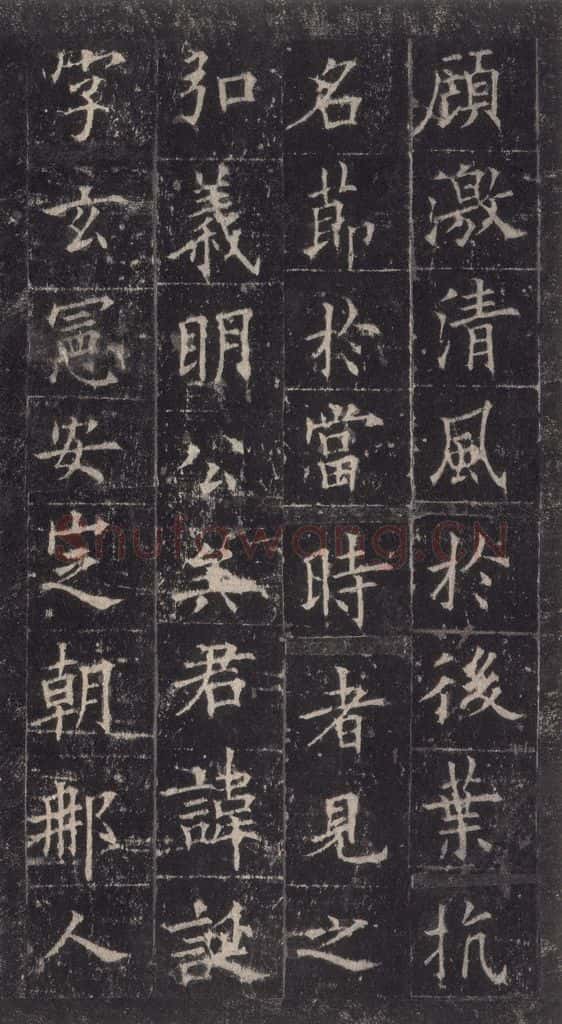 顧激清風於後葉抗
名節於當時者見之
弘義明公矣君諱誕
字玄憲安定朝那人
Shufawang.CN